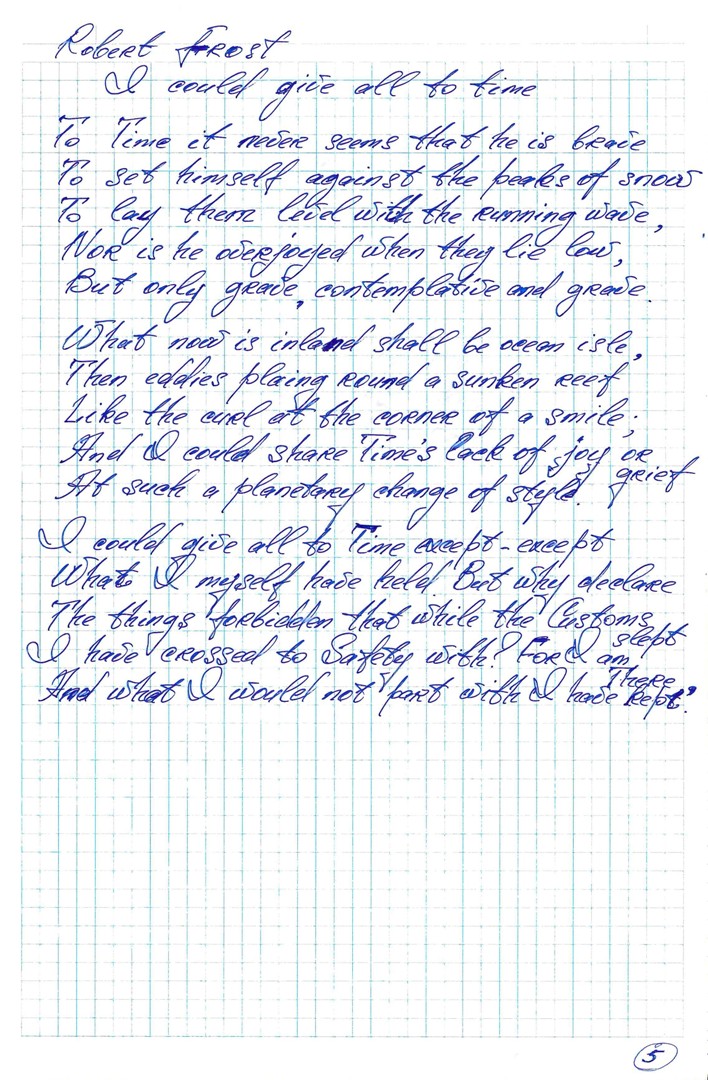 Robert Frost
I could give all to time
To Time it never seems that he is brave
To set himself against the peaks of snow
To lay them level with the running wave,
Nor is he overjoyed when they lie low,
But only grave, contemplative and grave.
What now is inland shall be ocean isle,
Then eddies plaing round a sunken reef
Like the curl at the corner of a smile;
And I could share Time's lack of joy or
grief
At such a planetary change of style.
I could give all to Time except - except
What I myself have held. But why declare
The things forbidden that while the Customs
slept
I have crossed to Safety with? For I am
There
And what I would not part with I have kept.
5